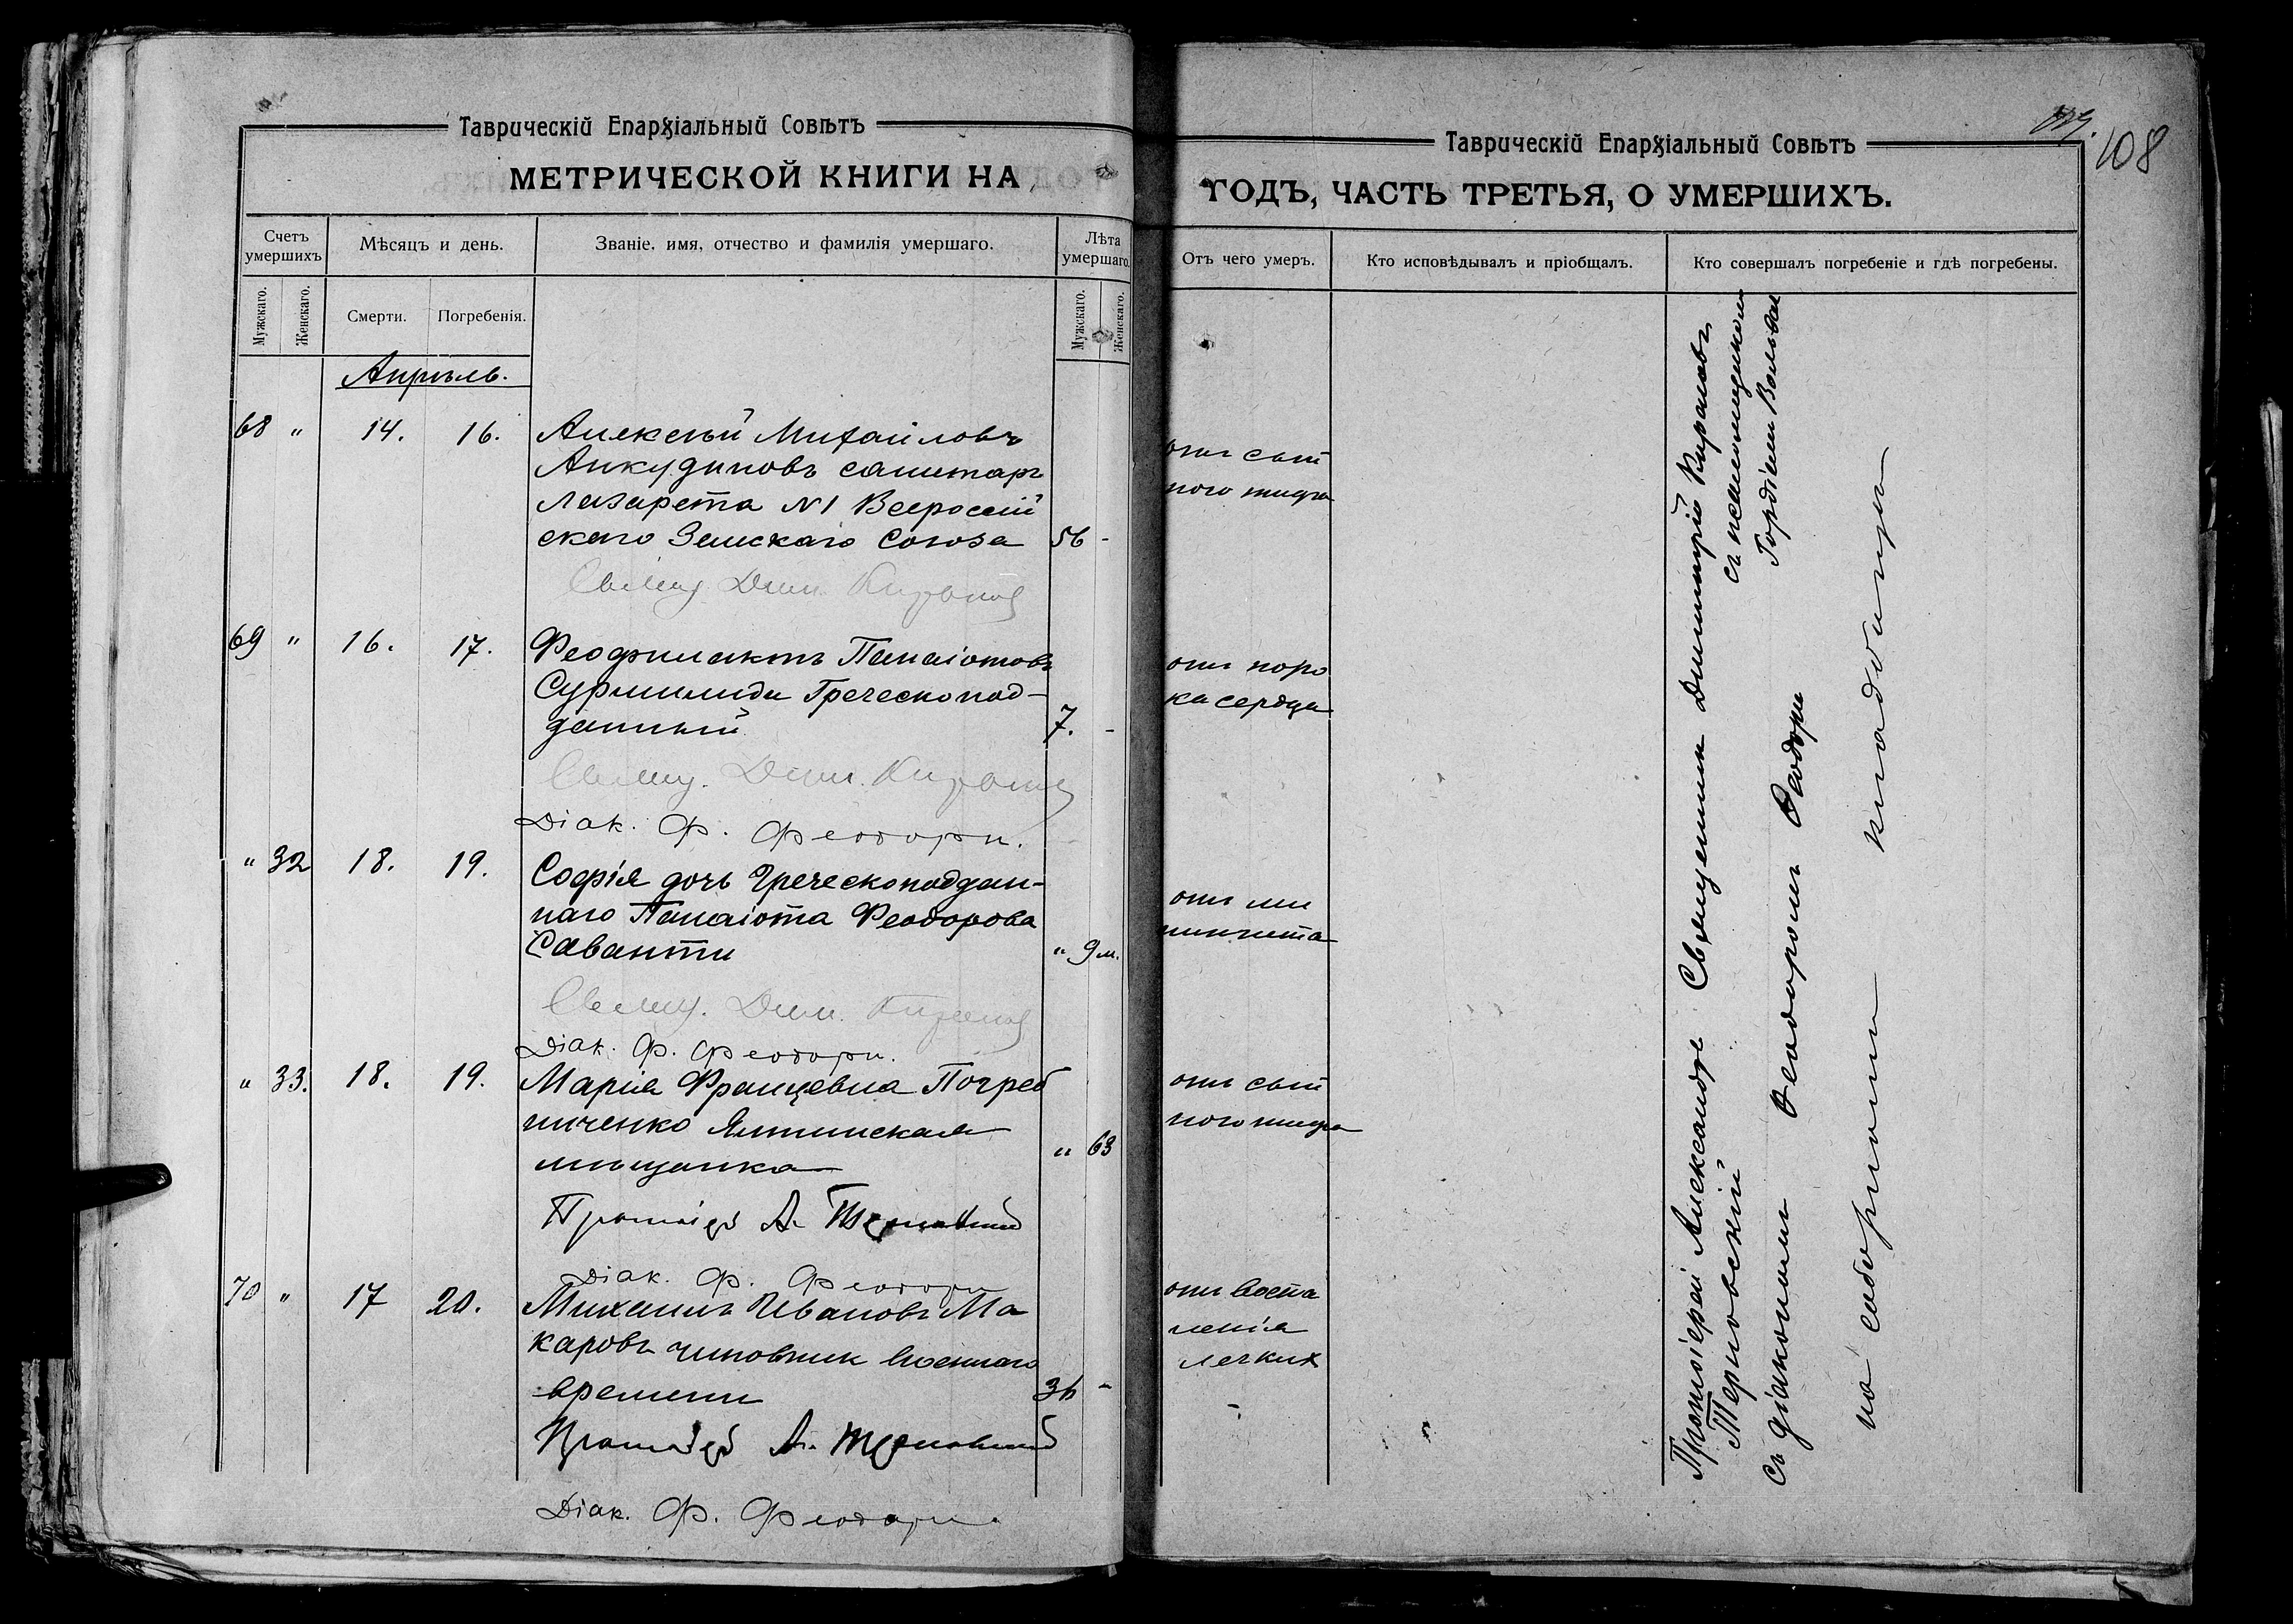 Таврическій Епархіальный Совѣтъ
МЕТРИЧЕСКОЙ КНИГИ НА
Счетъ умершихъ
Мѣсяцъ и день.
Званіе, имя, отчество и фамилія умершаго.
Лѣта умершаго.
Мужскаго.
Женскаго.
Смерти.
Погребенія.
Мужскаго.
Женскаго.
Апрѣль.
68 " 14. 16. Алексѣй Михаиловъ
Анкудиновъ санитаръ
лазарета N1 Всероссій
скаго Земскаго Союза 56 -
Свящ. Дим. Кирановъ
69 " 16. 17. Феофилактъ Панаіотовъ
Греческопод-
данный 7. -
Свящ. Дим. Кирановъ
Діак. Ф. Феодори.
" 32 18. 19. Софія дочь Греческоподдан-
наго Панаіота Феодорова
Саванти " 9 м.
Свящ. Дим. Кирановъ
Діак. Ф. Феодори.
" 33. 18. 19. Марія Францевна Погреб
ниченко Ялтинская
мѣщанка " 63
Протоіерей А. Терновскій
Діак. Ф. Феодори
70 " 17 20. Михаилъ Ивановъ Ма
каровъ чиновникъ военнаго
времени 36 -
Протоіерей А. Терновскій
Діак. Ф. Феодори.
Таврическій Епархіальный Совѣтъ
108
ГОДЪ, ЧАСТЬ ТРЕТЬЯ, О УМЕРШИХЪ.
Отъ чего умеръ.
Кто исповѣдывалъ и пріобщалъ.
Кто совершалъ погребеніе и гдѣ погребены.
отъ сып
ного тифа
отъ поро
ка сердца
отъ ме
нингита
отъ сып
ного тифа
отъ воспа
ленія
легких
Протоіерей Александръ
Терновскій
Священник Димитрій Кирановъ
съ псаломщикомъ
Гордіемъ
съ діакономъ Феодоромъ Феодори
на соборномъ кладбище